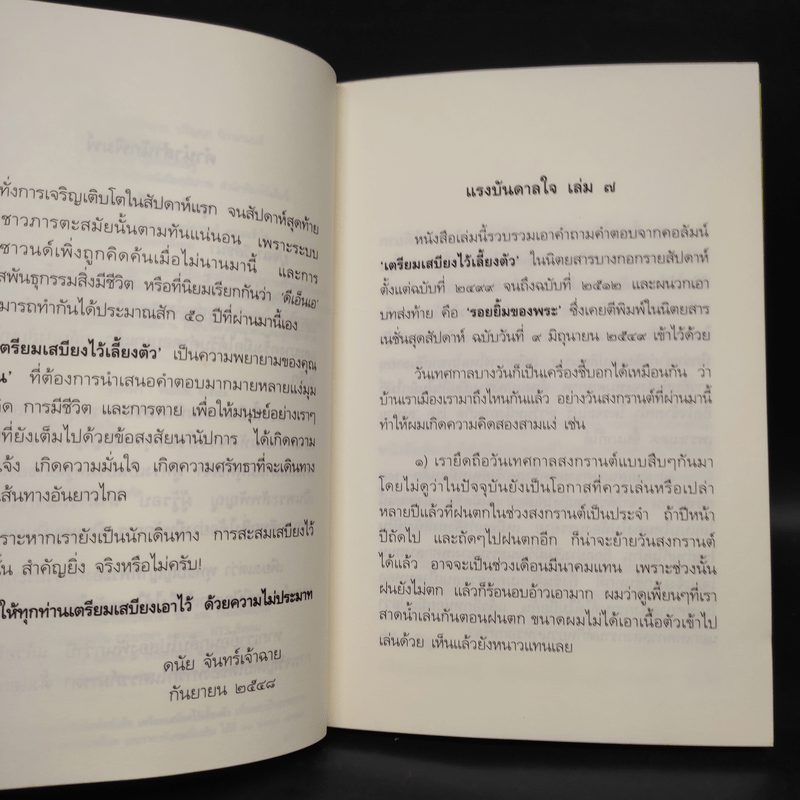 ทั่งการเจริญเติบโตในสัปดาห์แรก จนสัปดาห์สุดท้าย
ชาวภารตะสมัยนั้นตามทันแน่นอน เพราะระบบ
ซาวนด์เพิ่งถูกคิดค้นเมื่อไม่นานมานี้ และการ
สพันธุกรรมสิ่งมีชีวิต หรือที่นิยมเรียกกันว่า 'ดีเอ็นเอ'
มารถทำกันได้ประมาณสัก ๕๐ ปีที่ผ่านมานี้เอง
ตรียมเสบียงไว้เลี้ยงตัว' เป็นความพยายามของคุณ
น' ที่ต้องการนำเสนอคำตอบมากมายหลายแง่มุม
กิด การมีชีวิต และการตาย เพื่อให้มนุษย์อย่างเราๆ
ที่ยังเต็มไปด้วยข้อสงสัยนานัปการ ได้เกิดความ
แจ้ง เกิดความมั่นใจ เกิดความศรัทธาที่จะเดินทาง
เส้นทางอันยาวไกล
ราะหากเรายังเป็นนักเดินทาง การสะสมเสบียงไว้
ั้น สำคัญยิ่ง จริงหรือไม่ครับ!
ให้ทุกท่านเตรียมเสบียงเอาไว้ ด้วยความไม่ประมาท
ดนัย จันทร์เจ้าฉาย
กันยายน ๒๕๔๘
แรงบันดาลใจ เล่ม ๗
หนังสือเล่มนี้รวบรวมเอาคำถามคำตอบจากคอลัมน์
'เตรียมเสบียงไว้เลี้ยงตัว' ในนิตยสารบางกอกรายสัปดาห์
ตั้งแต่ฉบับที่ ๒๔๙๙ จนถึงฉบับที่ ๒๕๑๒ และผนวกเอา
บทส่งท้าย คือ 'รอยยิ้มของพระ' ซึ่งเคยตีพิมพ์ในนิตยสาร
เนชั่นสุดสัปดาห์ ฉบับวันที่ ๙ มิถุนายน ๒๕๔๙ เข้าไว้ด้วย
วันเทศกาลบางวันก็เป็นเครื่องชี้บอกได้เหมือนกัน ว่า
บ้านเราเมืองเรามาถึงไหนกันแล้ว อย่างวันสงกรานต์ที่ผ่านมานี้
ทำให้ผมเกิดความคิดสองสามแง่ เช่น
๑) เรายึดถือวันเทศกาลสงกรานต์แบบสืบๆกันมา
โดยไม่ดูว่าในปัจจุบันยังเป็นโอกาสที่ควรเล่นหรือเปล่า
หลายปีแล้วที่ฝนตกในช่วงสงกรานต์เป็นประจำ ถ้าปีหน้า
ปีถัดไป และถัดๆไปฝนตกอีก ก็น่าจะย้ายวันสงกรานต์
ได้แล้ว อาจจะเป็นช่วงเดือนมีนาคมแทน เพราะช่วงนั้น
ฝนยังไม่ตก แล้วก็ร้อนอบอ้าวเอามาก ผมว่าดูเพี้ยนๆที่เรา
สาดน้ำเล่นกันตอนฝนตก ขนาดผมไม่ได้เอาเนื้อตัวเข้าไป
เล่นด้วย เห็นแล้วยังหนาวแทนเลย